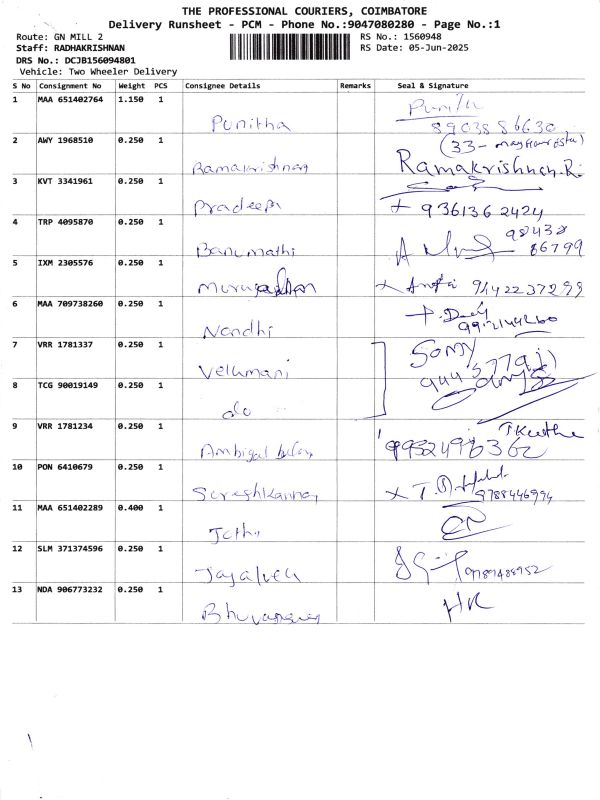 THE PROFESSIONAL COURIERS, COIMBATORE
Delivery Runsheet - PCM - Phone No.:9047080280 - Page No.:1
Route: GN MILL 2 RS No.: 1560948
Staff: RADHAKRISHNAN RS Date: 05-Jun-2025
DRS No.: DCJB156094801
Vehicle: Two Wheeler Delivery
S No Consignment No Weight PCS Consignee Details Remarks Seal & Signature
1 MAA 651402764 1.150 1
Punitha
8903886630
2 AWY 1968510 0.250 1
(33-
Ramakrishnan Ramakrishnan.R.
3 KVT 3341961 0.250 1
Pradeep 9361362424
4 TRP 4095870 0.250 1
98438
Banumathi 86799
5 IXM 2305576 0.250 1
9142237299
6 MAA 709738260 0.250 1
Nandhi
7 VRR 1781337 0.250 1
Velumani
8 TCG 90019149 0.250 1
do
9 VRR 1781234 0.250 1
Ambigal 9952496362
10 PON 6410679 0.250 1
Sureshkannan 9788446994
11 MAA 651402289 0.400 1
Jothi
12 SLM 371374596 0.250 1
9789488952
13 NDA 906773232 0.250 1
HR